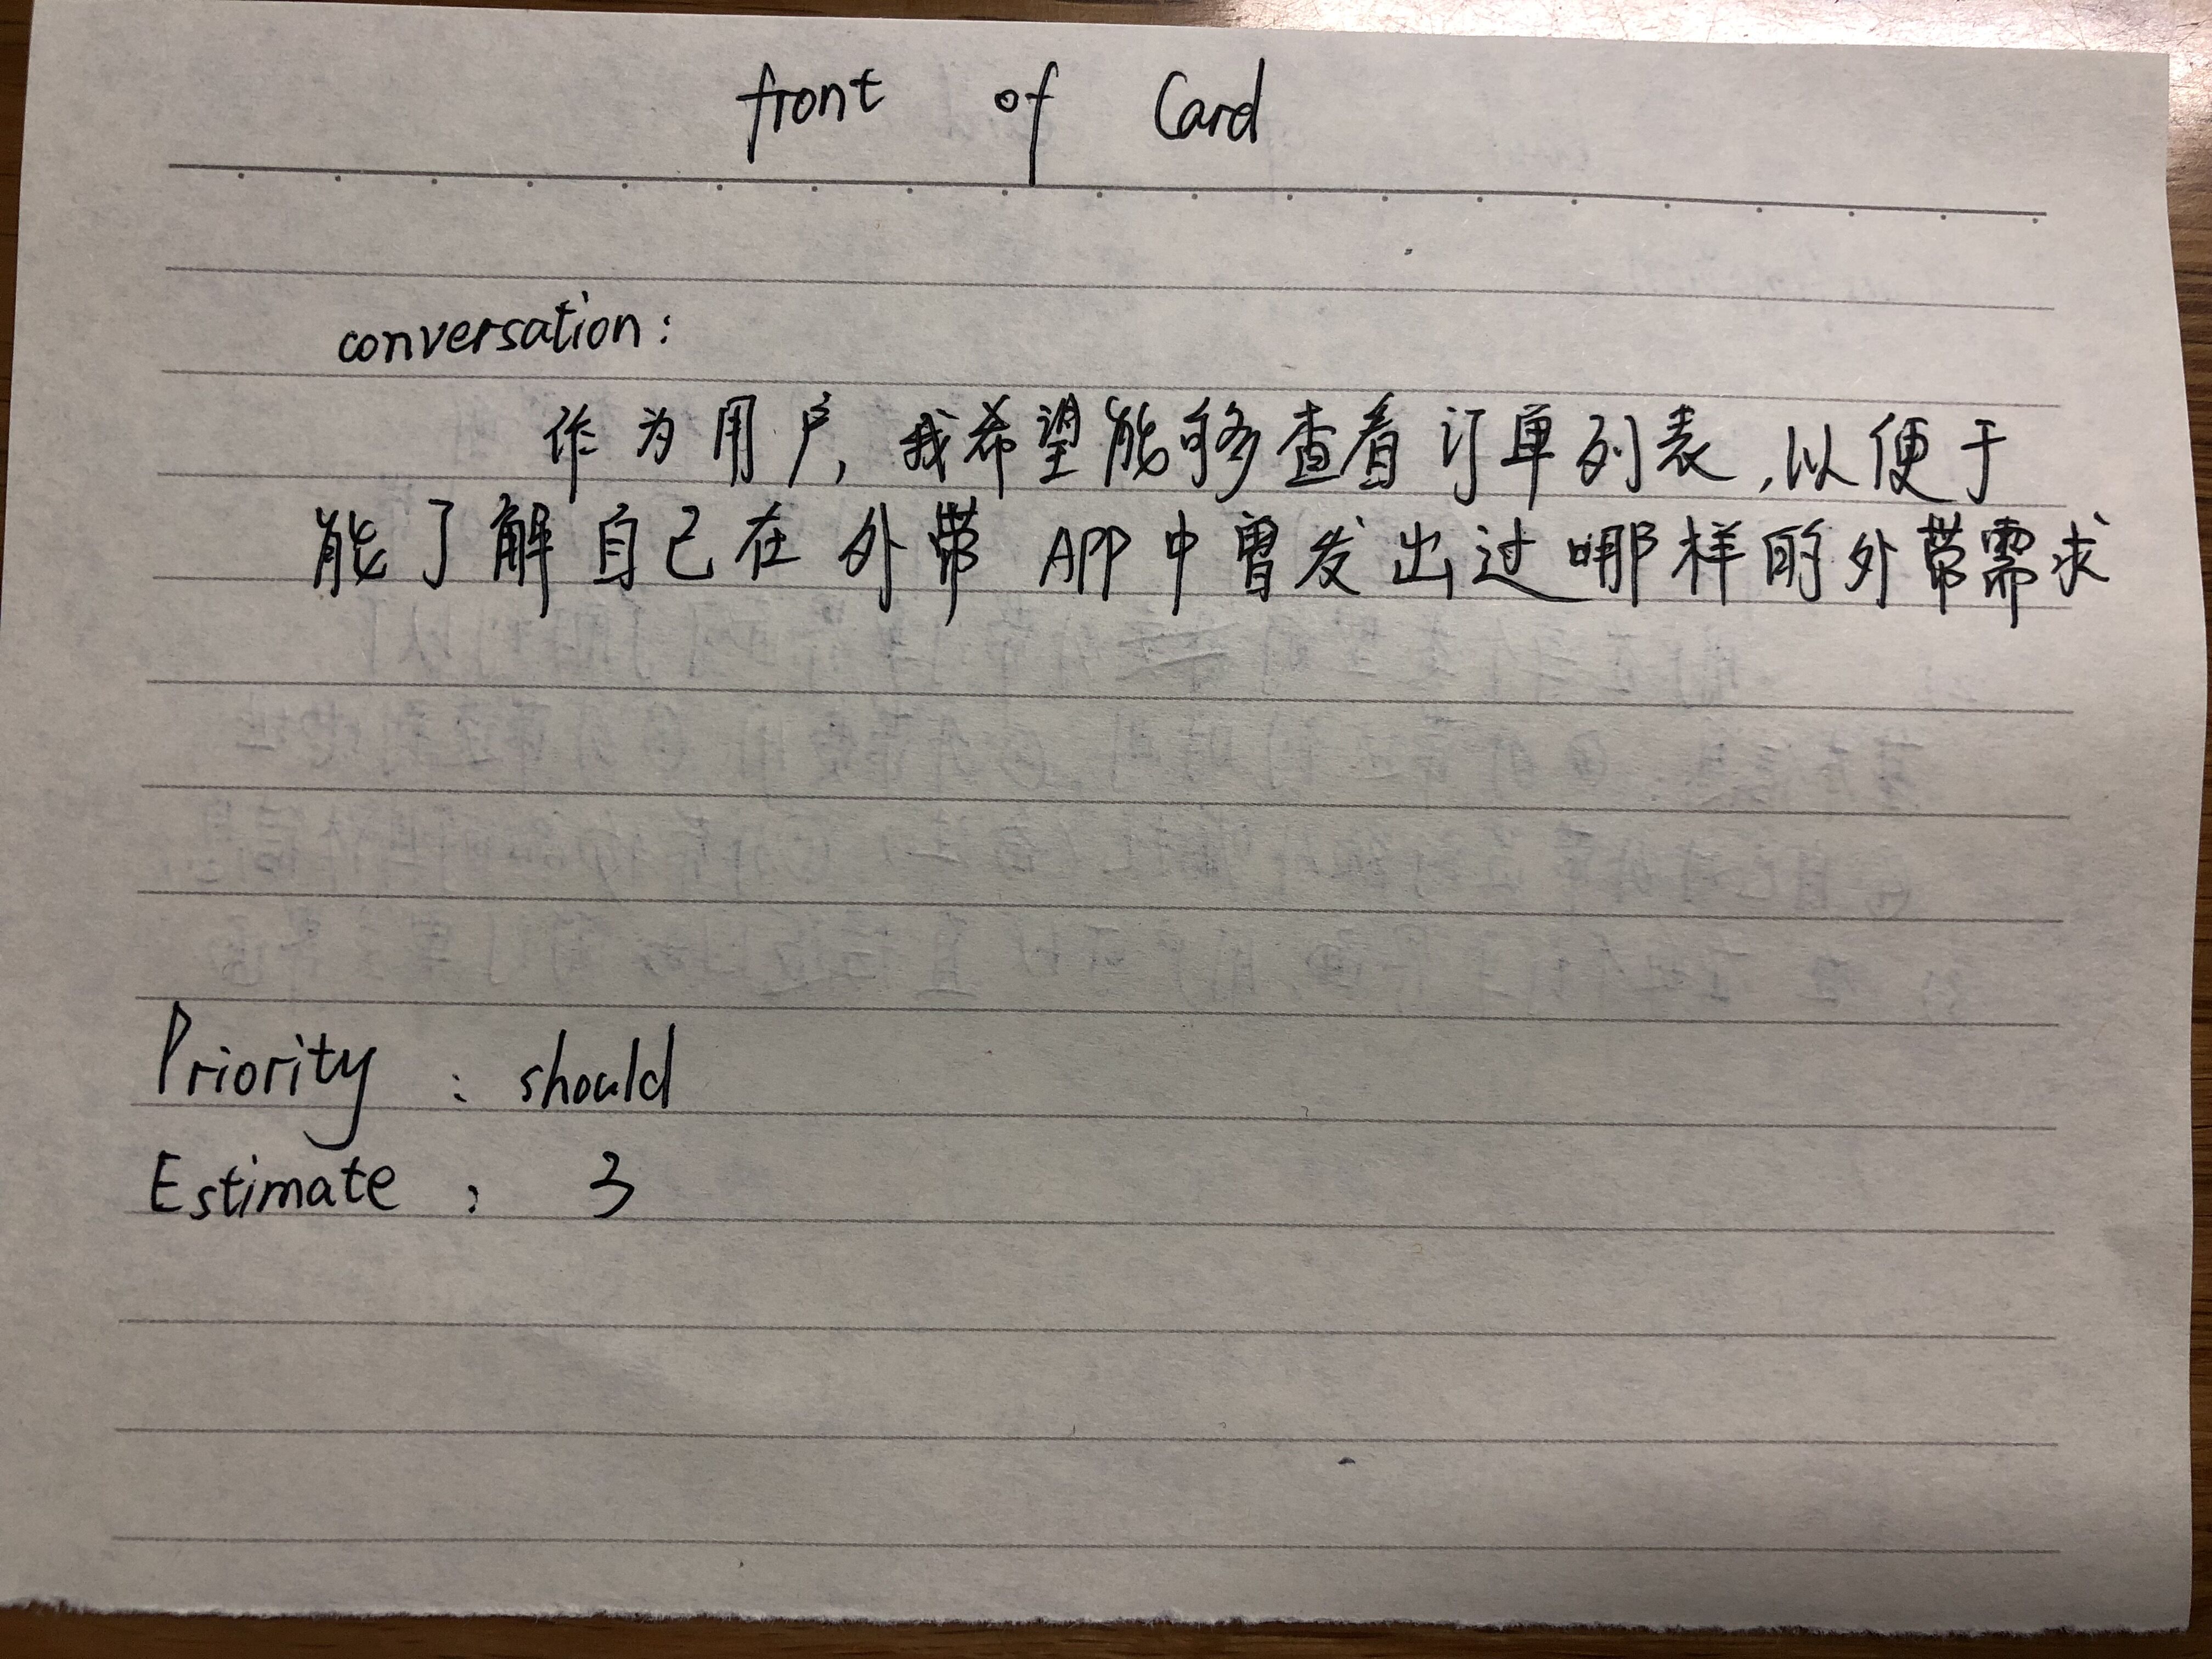 front of Card
conversation:
作为用户, 我希望能够查看订单列表, 以便于
能了解自己在外带 APP 中曾发出过哪样的外带需求
Priority : should
Estimate : 3